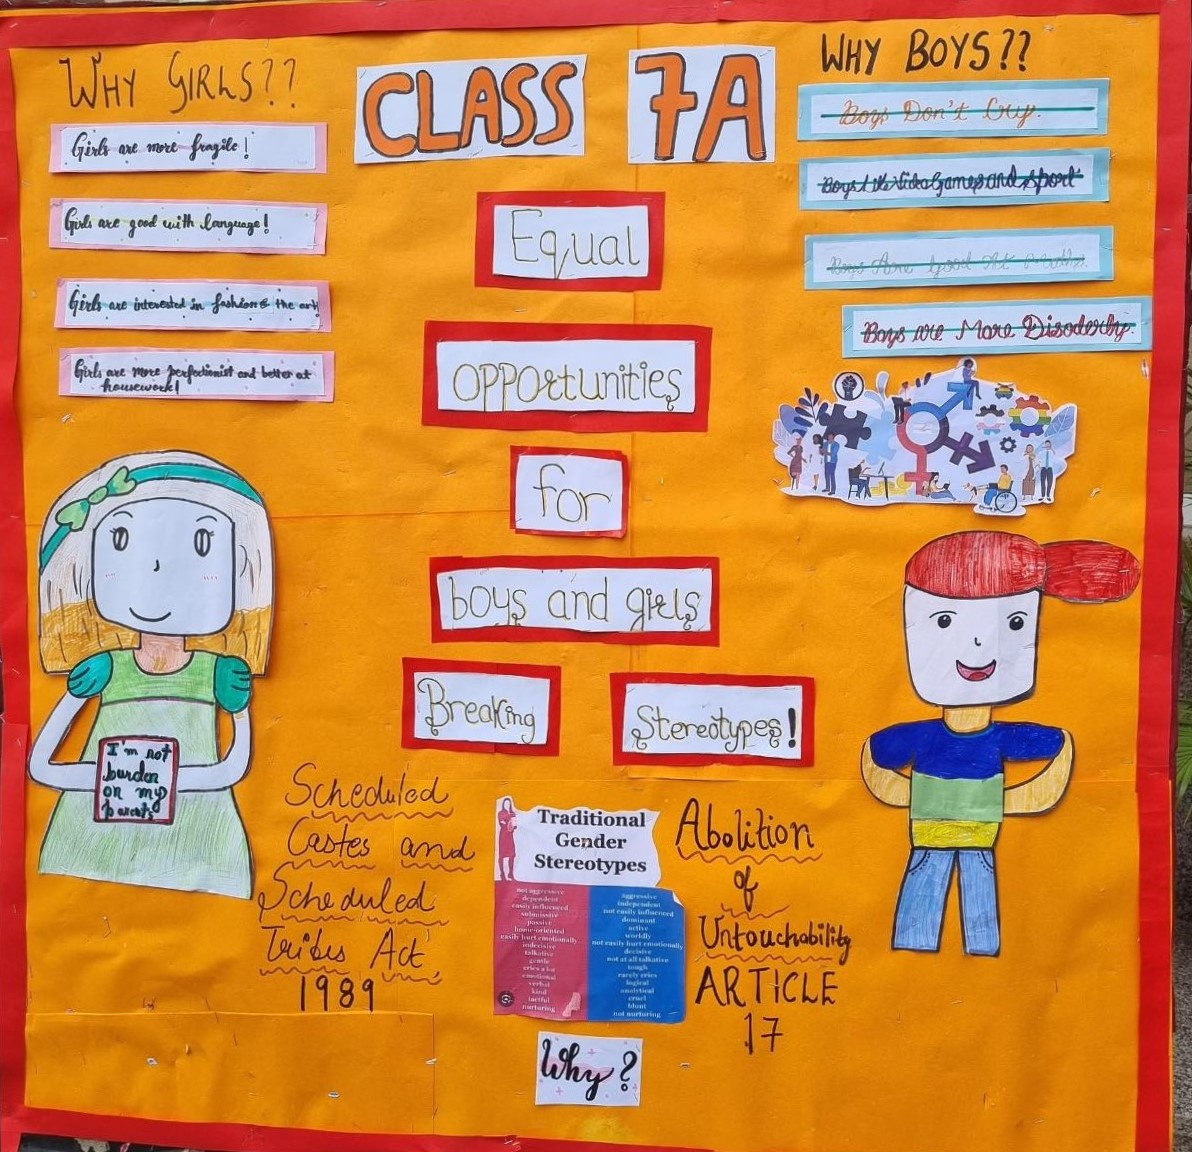 WHY GIRLS??
Girls are more fragile!
Girls are good with language!
Girls are interested in fashion & the art!
Girls are more perfectionist and better at
housework!
CLASS 7A
Equal
opportunities
for
boys and girls
Breaking Stereotypes!
WHY BOYS??
Boys Don't Cry.
Boys like Video Games and Sport
Boys Are Good At Maths.
Boys are More Disoderly.
I'm not
burden
on my
parents
Scheduled
Castes and
Scheduled
Tribes Act,
1989
Traditional
Gender
Stereotypes
not aggressive
dependent
easily influenced
submissive
passive
home-oriented
easily hurt emotionally
indecisive
talkative
gentle
cries a lot
emotional
verbal
kind
tactful
nurturing
aggressive
independent
not easily influenced
dominant
active
worldly
not easily hurt emotionally
decisive
not at all talkative
tough
rarely cries
logical
analytical
cruel
blunt
not nurturing
Why?
Abolition
of
Untouchability
ARTICLE
17